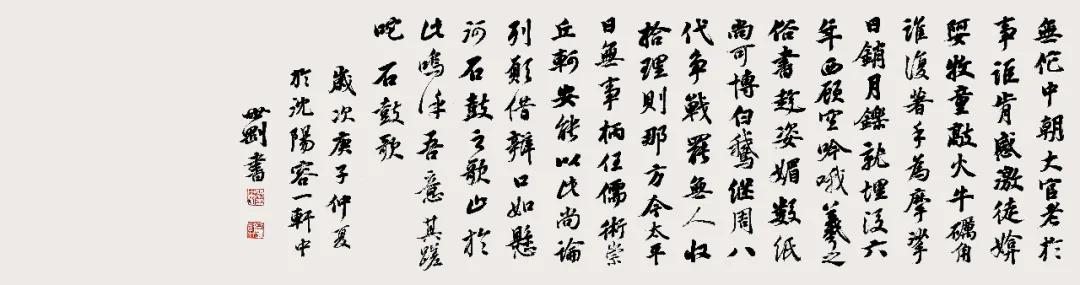 無佗中朝大官老於
事詎肯感激徒媕
娿牧童敲火牛礪角
誰復著手為摩挲
日銷月鑠就埋沒六
年西顧空吟哦羲之
俗書趁姿媚數紙
尚可博白鵝繼周八
代爭戰罷無人收
拾理則那方今太平
日無事柄任儒術崇
丘軻安能以此尚論
列願借辯口如懸
河石鼓之歌止於
此嗚呼吾意其蹉
跎 石鼓歌
歲次庚子仲夏
於沈陽容一軒中
世剛書